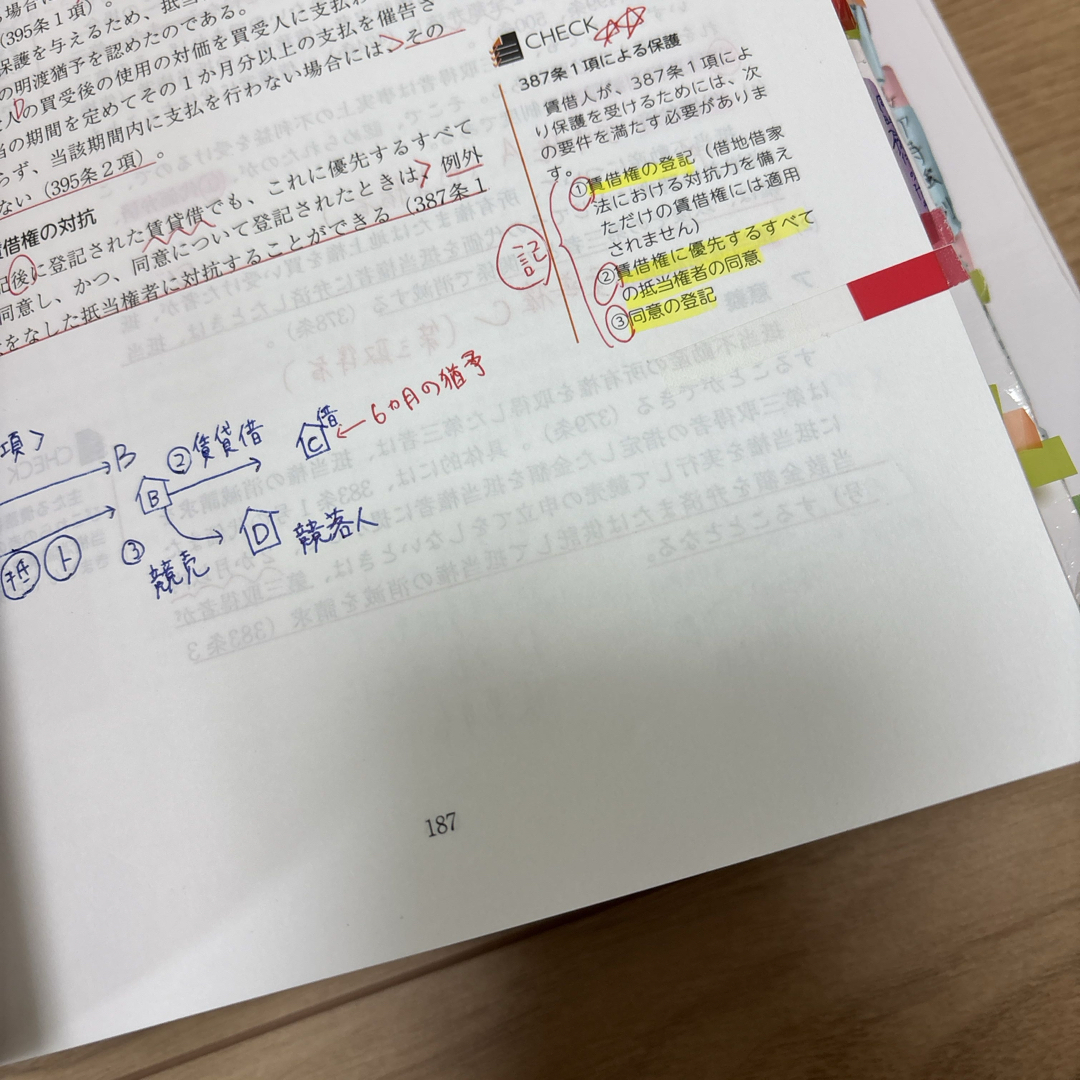 (395条1項)。
保護を与えるため、抵当
の明渡猶予を認めたのである。
人の買受後の使用の対価を買受人に支払わ
当の期間を定めてその1か月分以上の支払を催告さ
らず、当該期間内に支払を行わない場合には、その
ない(395条2項)。
賃借権の対抗
記後に登記された賃貸借でも、これに優先するすべて
同意し、かつ、同意について登記されたときは、例外
をなした抵当権者に対抗することができる(387条1
CHECK
387条1項による保護
賃借人が、387条1項によ
り保護を受けるためには、次
の要件を満たす必要がありま
す。
①賃借権の登記(借地借家
法における対抗力を備え
ただけの賃借権には適用
されません)
②賃借権に優先するすべて
の抵当権者の同意
③同意の登記
記
項>
B
B
②賃貸借
C
借
←6ヵ月の猶予
抵
ト
③
競売
D
競落人
187